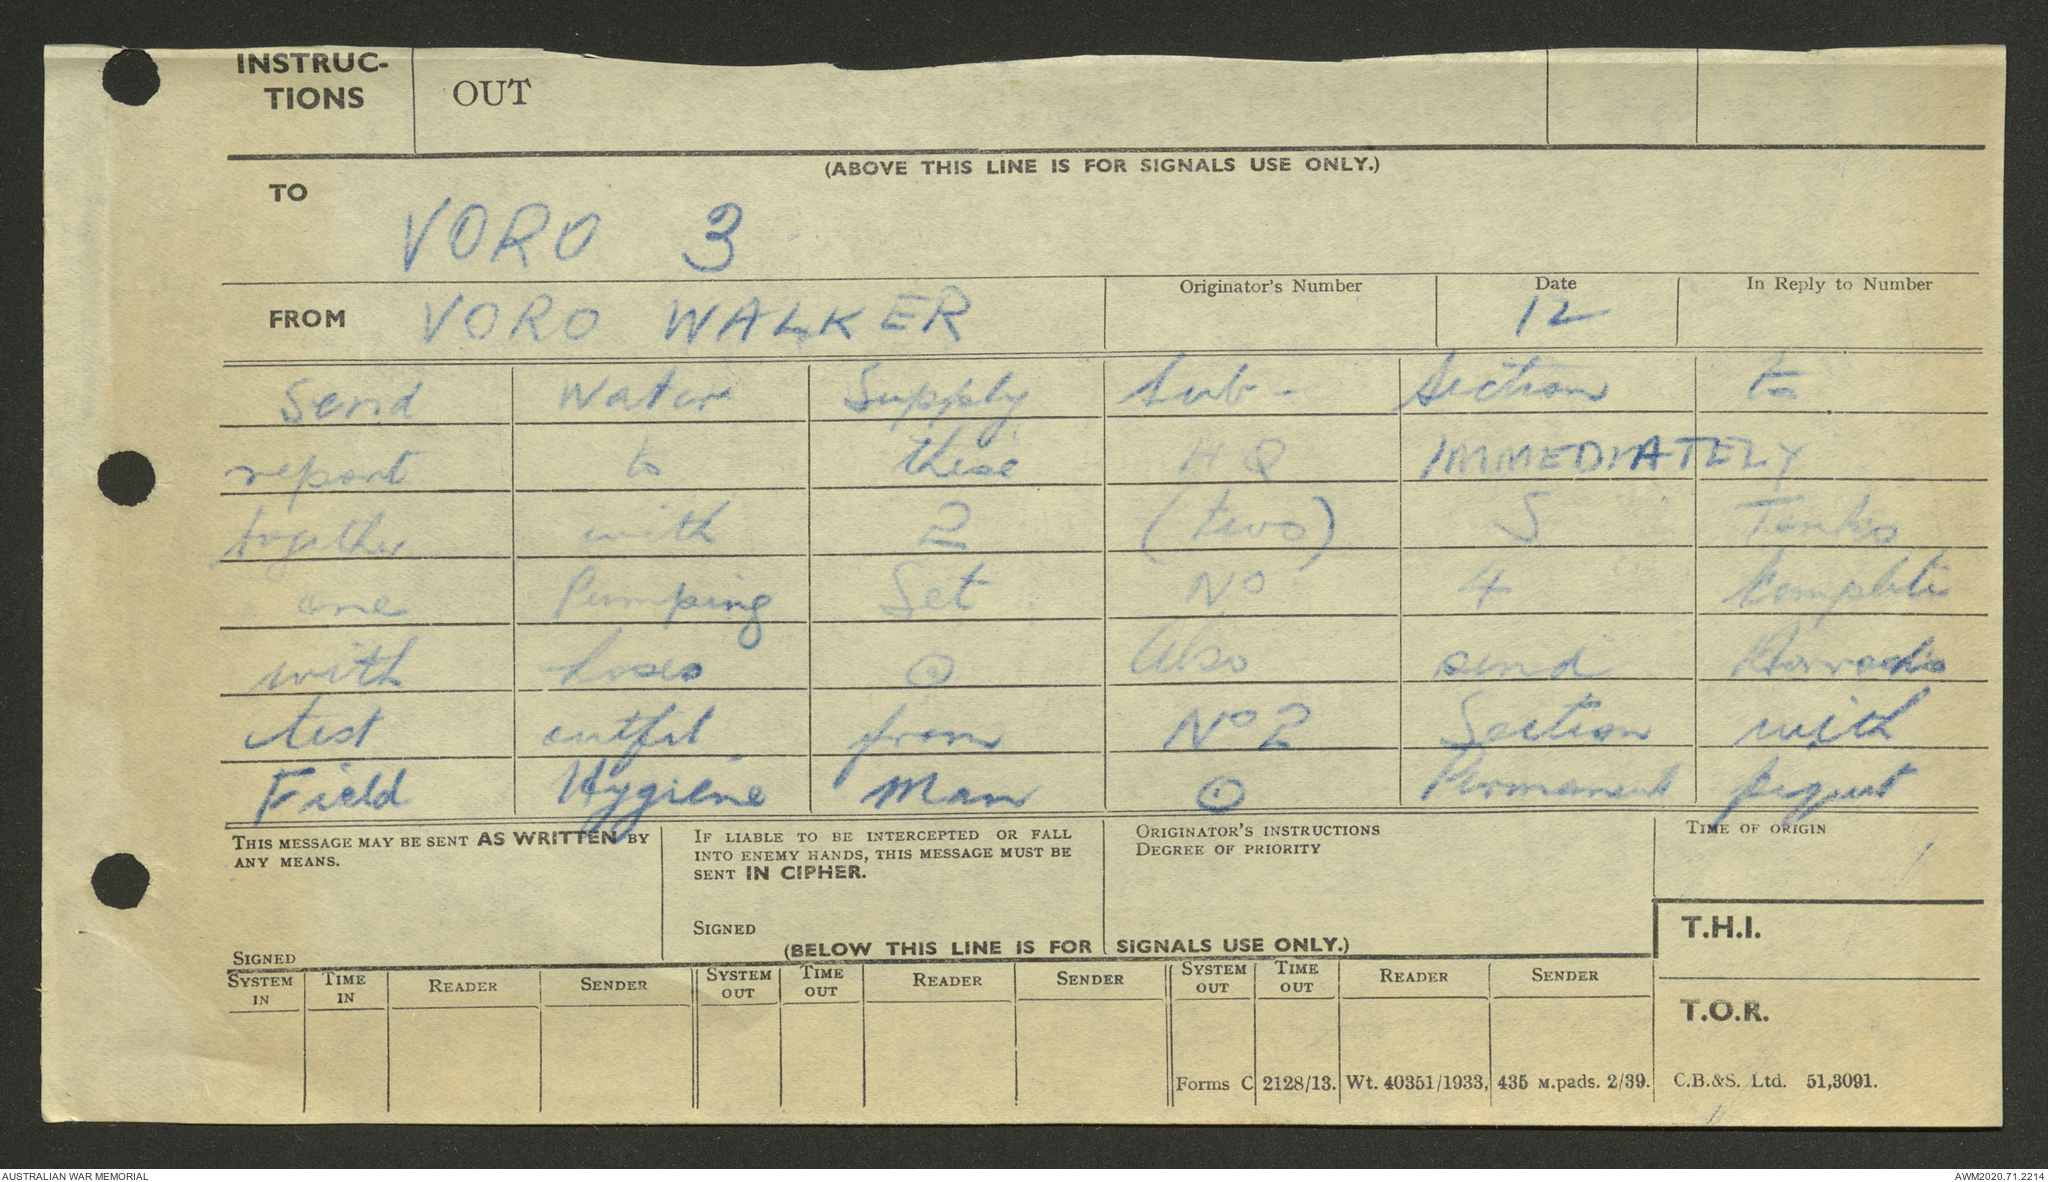 INSTRUC-
TIONS
OUT
(ABOVE THIS LINE IS FOR SIGNALS USE ONLY.)
TO
VORO 3
FROM
VORO WALKER
Originator's Number
Date
12
In Reply to Number
Send Water Supply Sub- Section to
report to these HQ IMMEDIATELY
together with 2 (two) S Tanks
one Pumping Set No 4 complete
with hoses ⊙ Also send Horrocks
test outfit from No 2 Section with
Field Hygiene Man ⊙ Permanent
THIS MESSAGE MAY BE SENT AS WRITTEN BY
ANY MEANS.
SIGNED
IF LIABLE TO BE INTERCEPTED OR FALL
INTO ENEMY HANDS, THIS MESSAGE MUST BE
SENT IN CIPHER.
SIGNED
ORIGINATOR'S INSTRUCTIONS
DEGREE OF PRIORITY
TIME OF ORIGIN
T.H.I.
T.O.R.
(BELOW THIS LINE IS FOR SIGNALS USE ONLY.)
SYSTEM IN
TIME IN
READER
SENDER
SYSTEM OUT
TIME OUT
READER
SENDER
SYSTEM OUT
TIME OUT
READER
SENDER
Forms C 2128/13. Wt. 40351/1933, 435 M.pads. 2/39. C.B.&S. Ltd. 51,3091.
AUSTRALIAN WAR MEMORIAL
AWM2020.71.2214